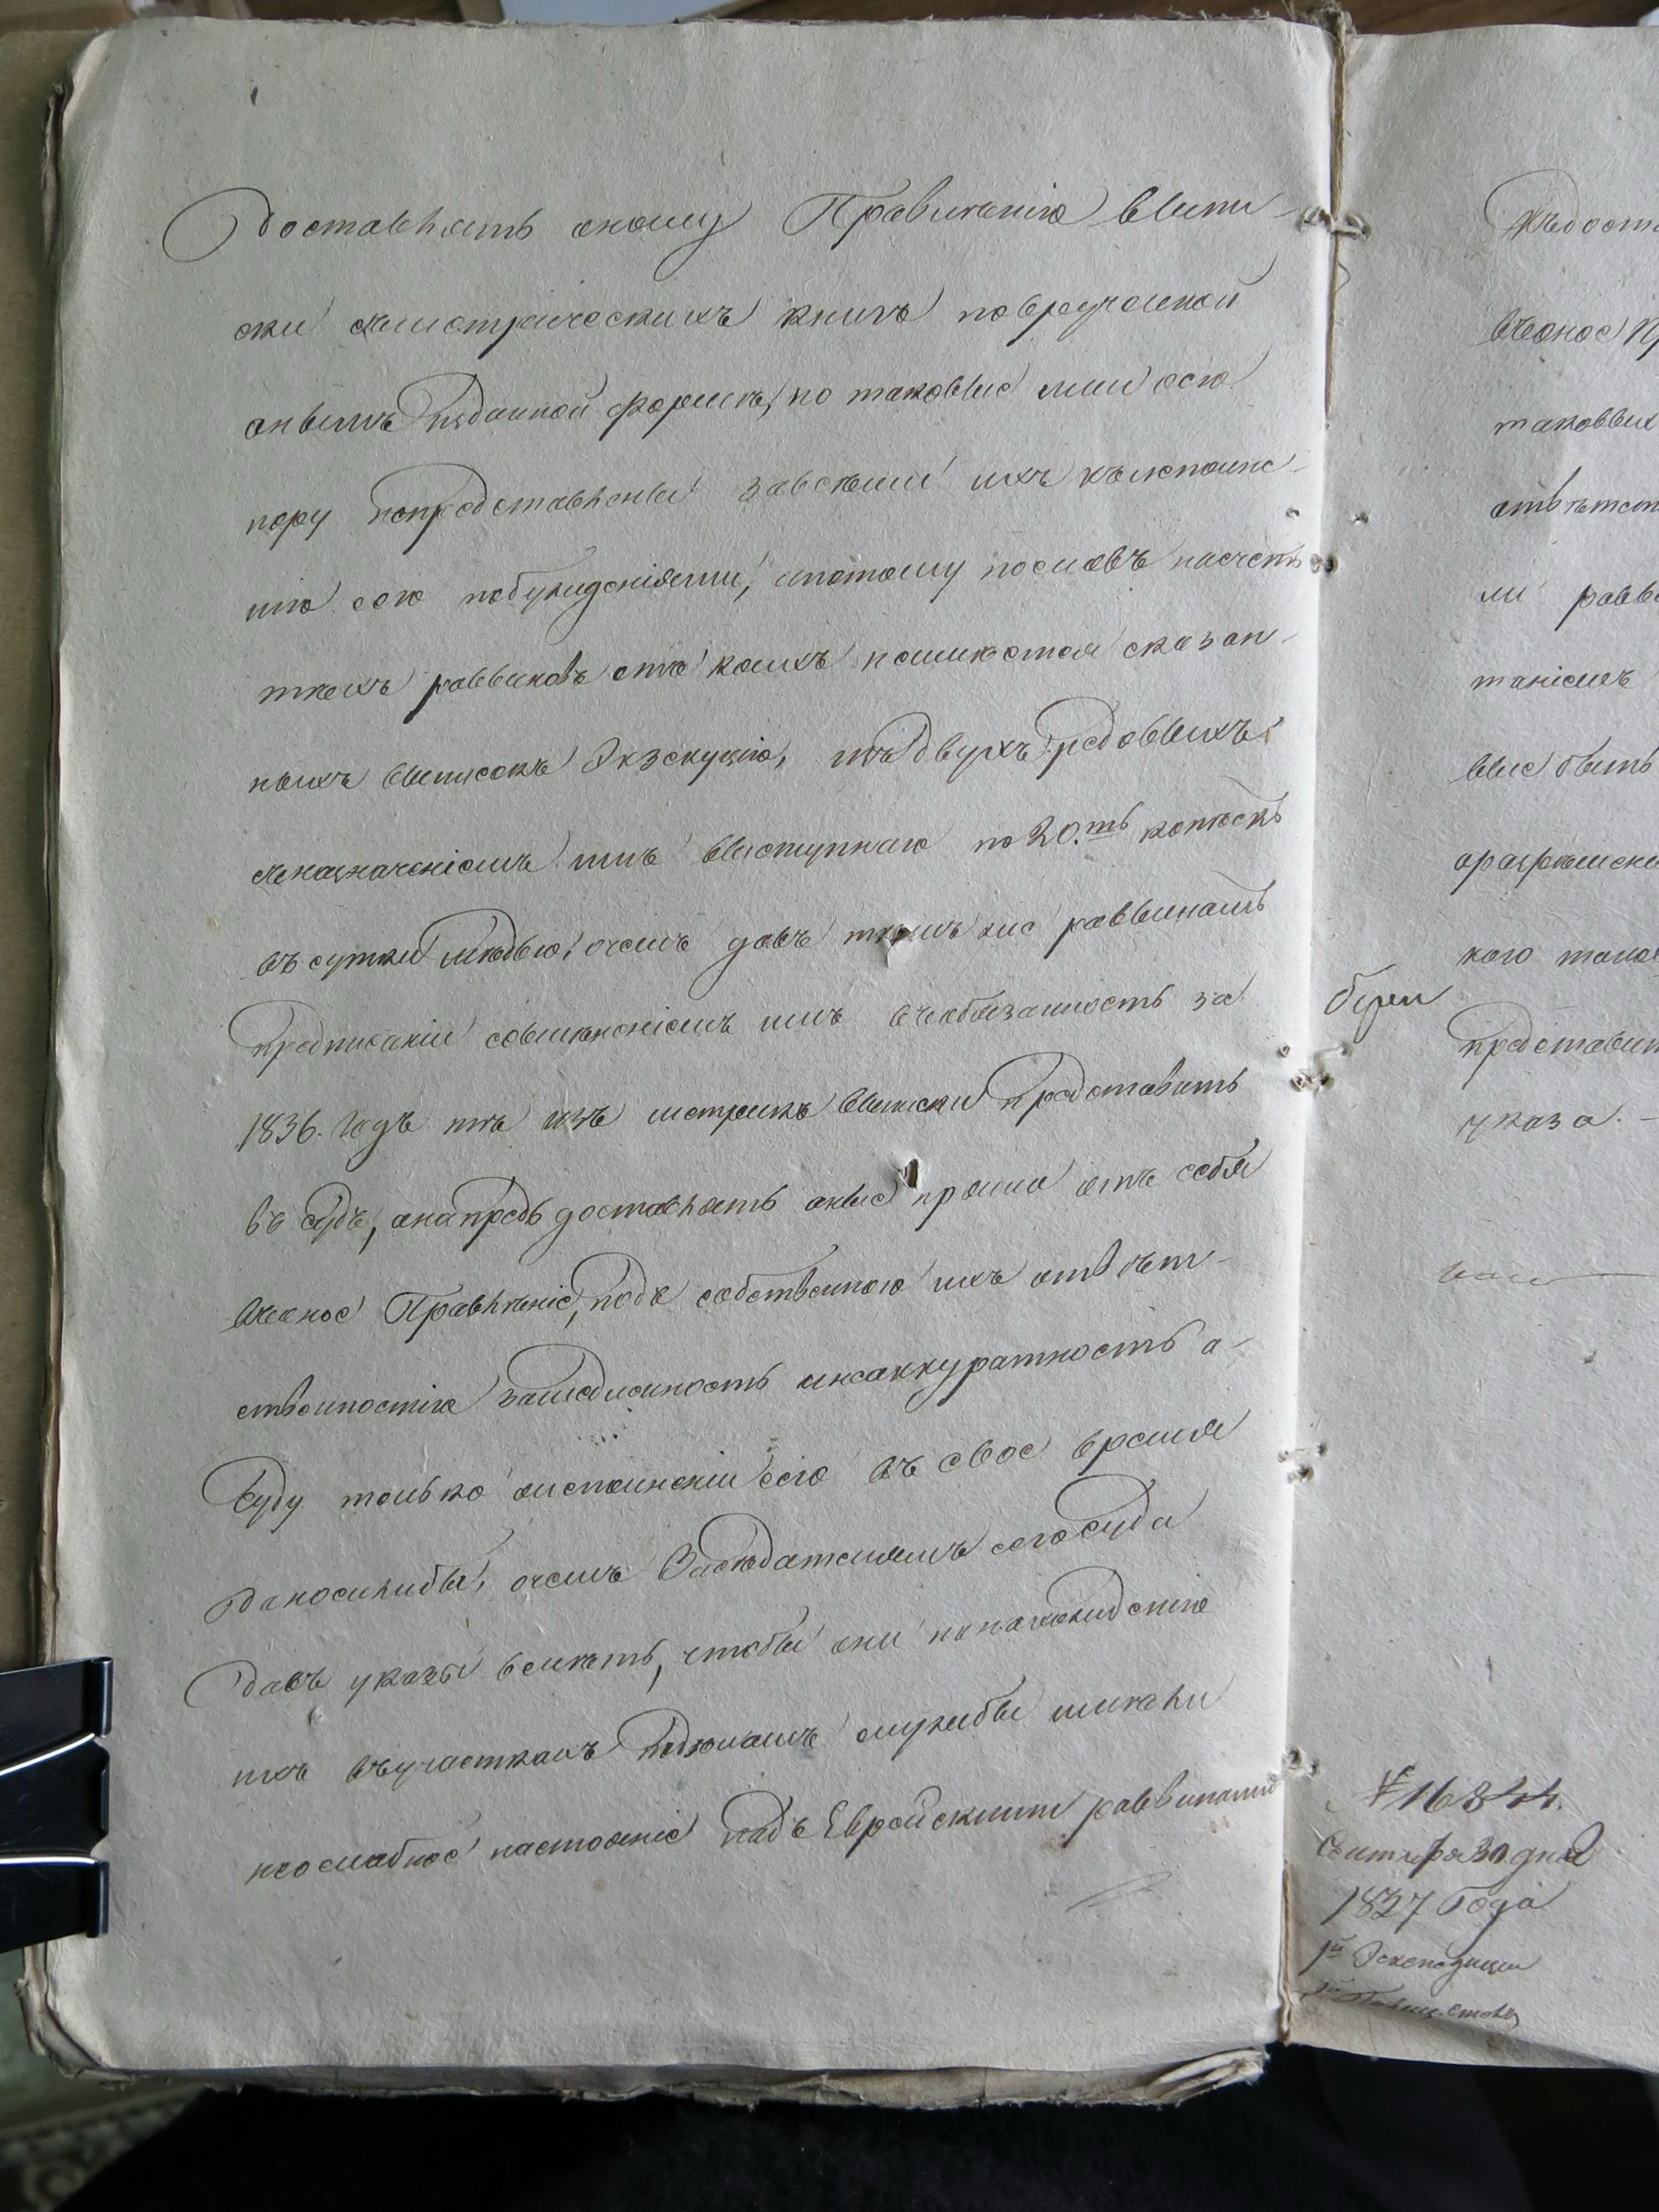 доставлять оному Правленію выпи-
ски съметрическихъ книгъ повручонной
онымъ изданной формѣ, но таковые ими осю
пору непредставлены завсѣми ихъ къисполне-
нію сего побужденіями, апотому пославъ насчетъ
тѣхъ раввиновъ отъ коихъ неимѣется сказан-
ныхъ выписокъ Экзекуцію, изъ двухъ рядовыхъ
съназначеніемъ имъ выступнаго по 20.ть копѣекъ
въ сутки мѣдью, очемъ давъ темъ же раввинамъ
предписаніи совмѣненіемъ имъ въобязанность за
1836. годъ тѣ изъ метрикъ выписки представить
въ судъ, анапредь доставлять оные прямо отъ себя
въоное Правленіе, подъ собственною ихъ отвѣт-
ственностію замедленность инеаккуратность а-
буду только обисполненіи сего въ свое время
доносилибы, очемъ Засѣдателямъ сего суда
давъ указы велѣть, чтобы они понахожденію
ихъ въучасткахъ подѣламъ службы имѣли
неослабное настояніе надъ Еврейскими раввинами
къдост
въоное Пр
таковых
отвѣтст
ми равв
таніемъ
вые быть
оразрѣшені
кого тако
представит
указа. -
№ 16844.
Сентября 30. дня
1837 Года
1й Экспедиции